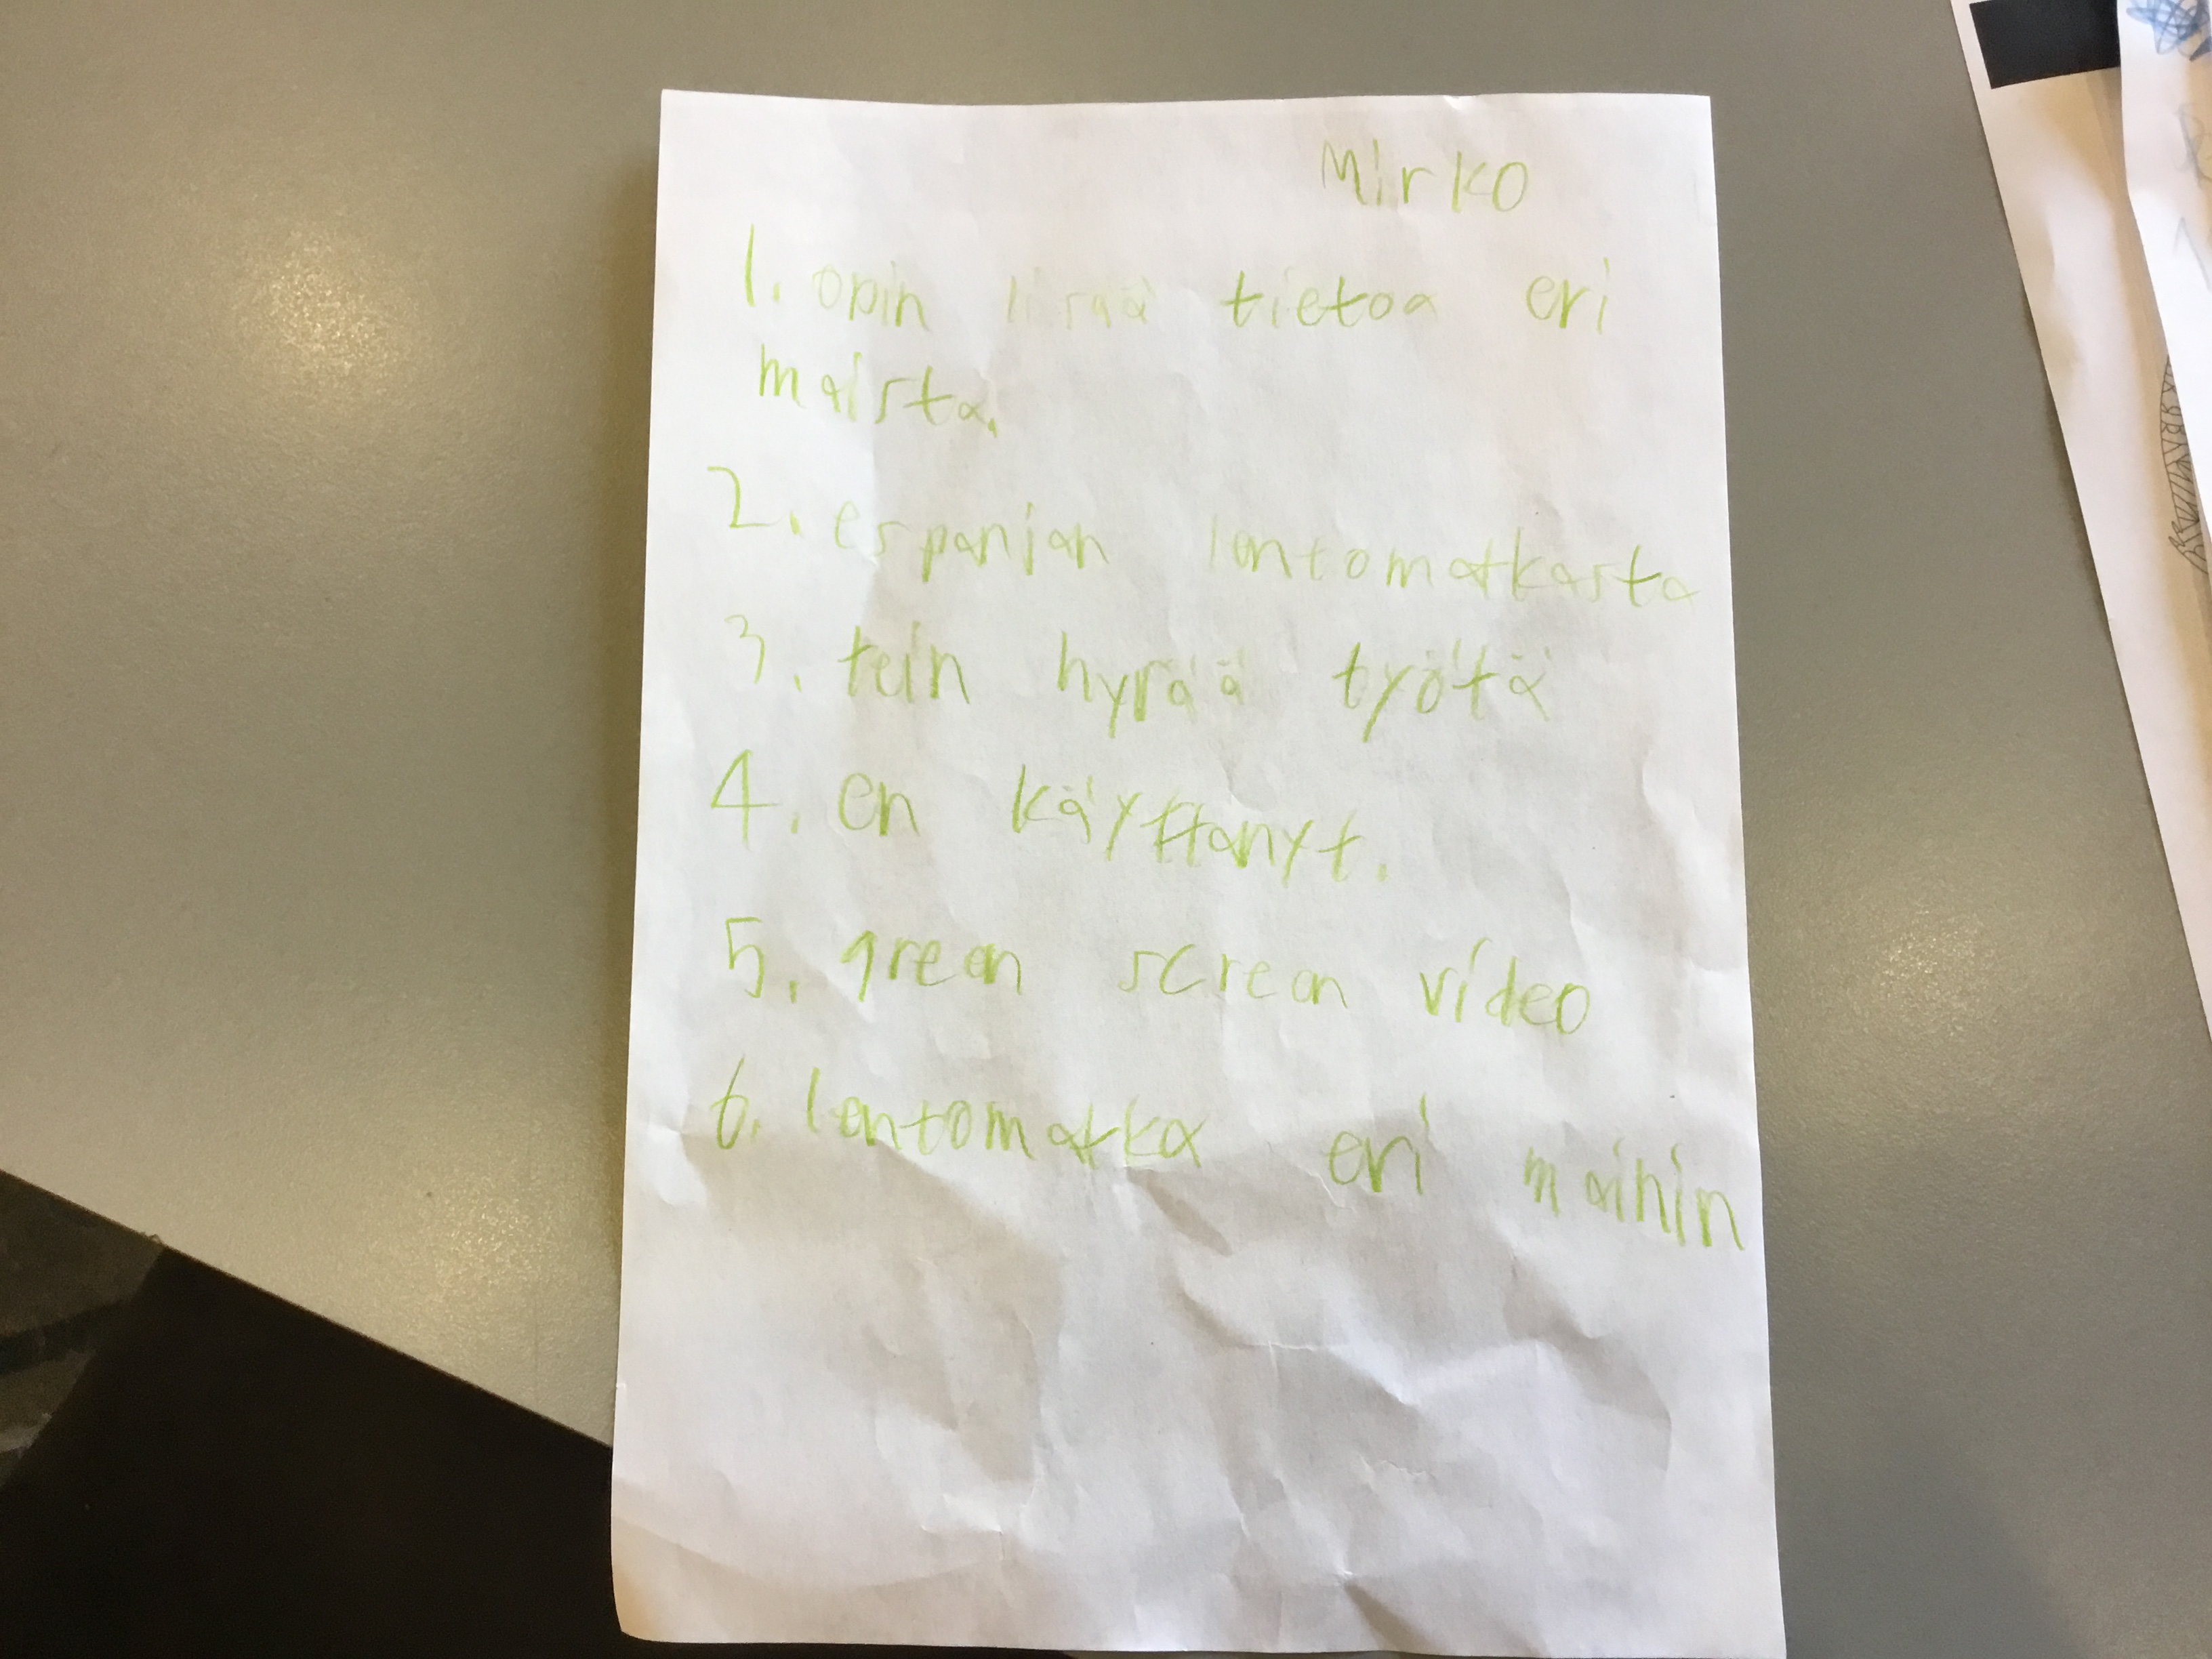 Mirko
1. opin lisää tietoa eri
maista.
2. espanjan lentomatkasta
3. tein hyvää työtä
4. en käyttanyt.
5. green screen video
6. lentomatka eri maihin